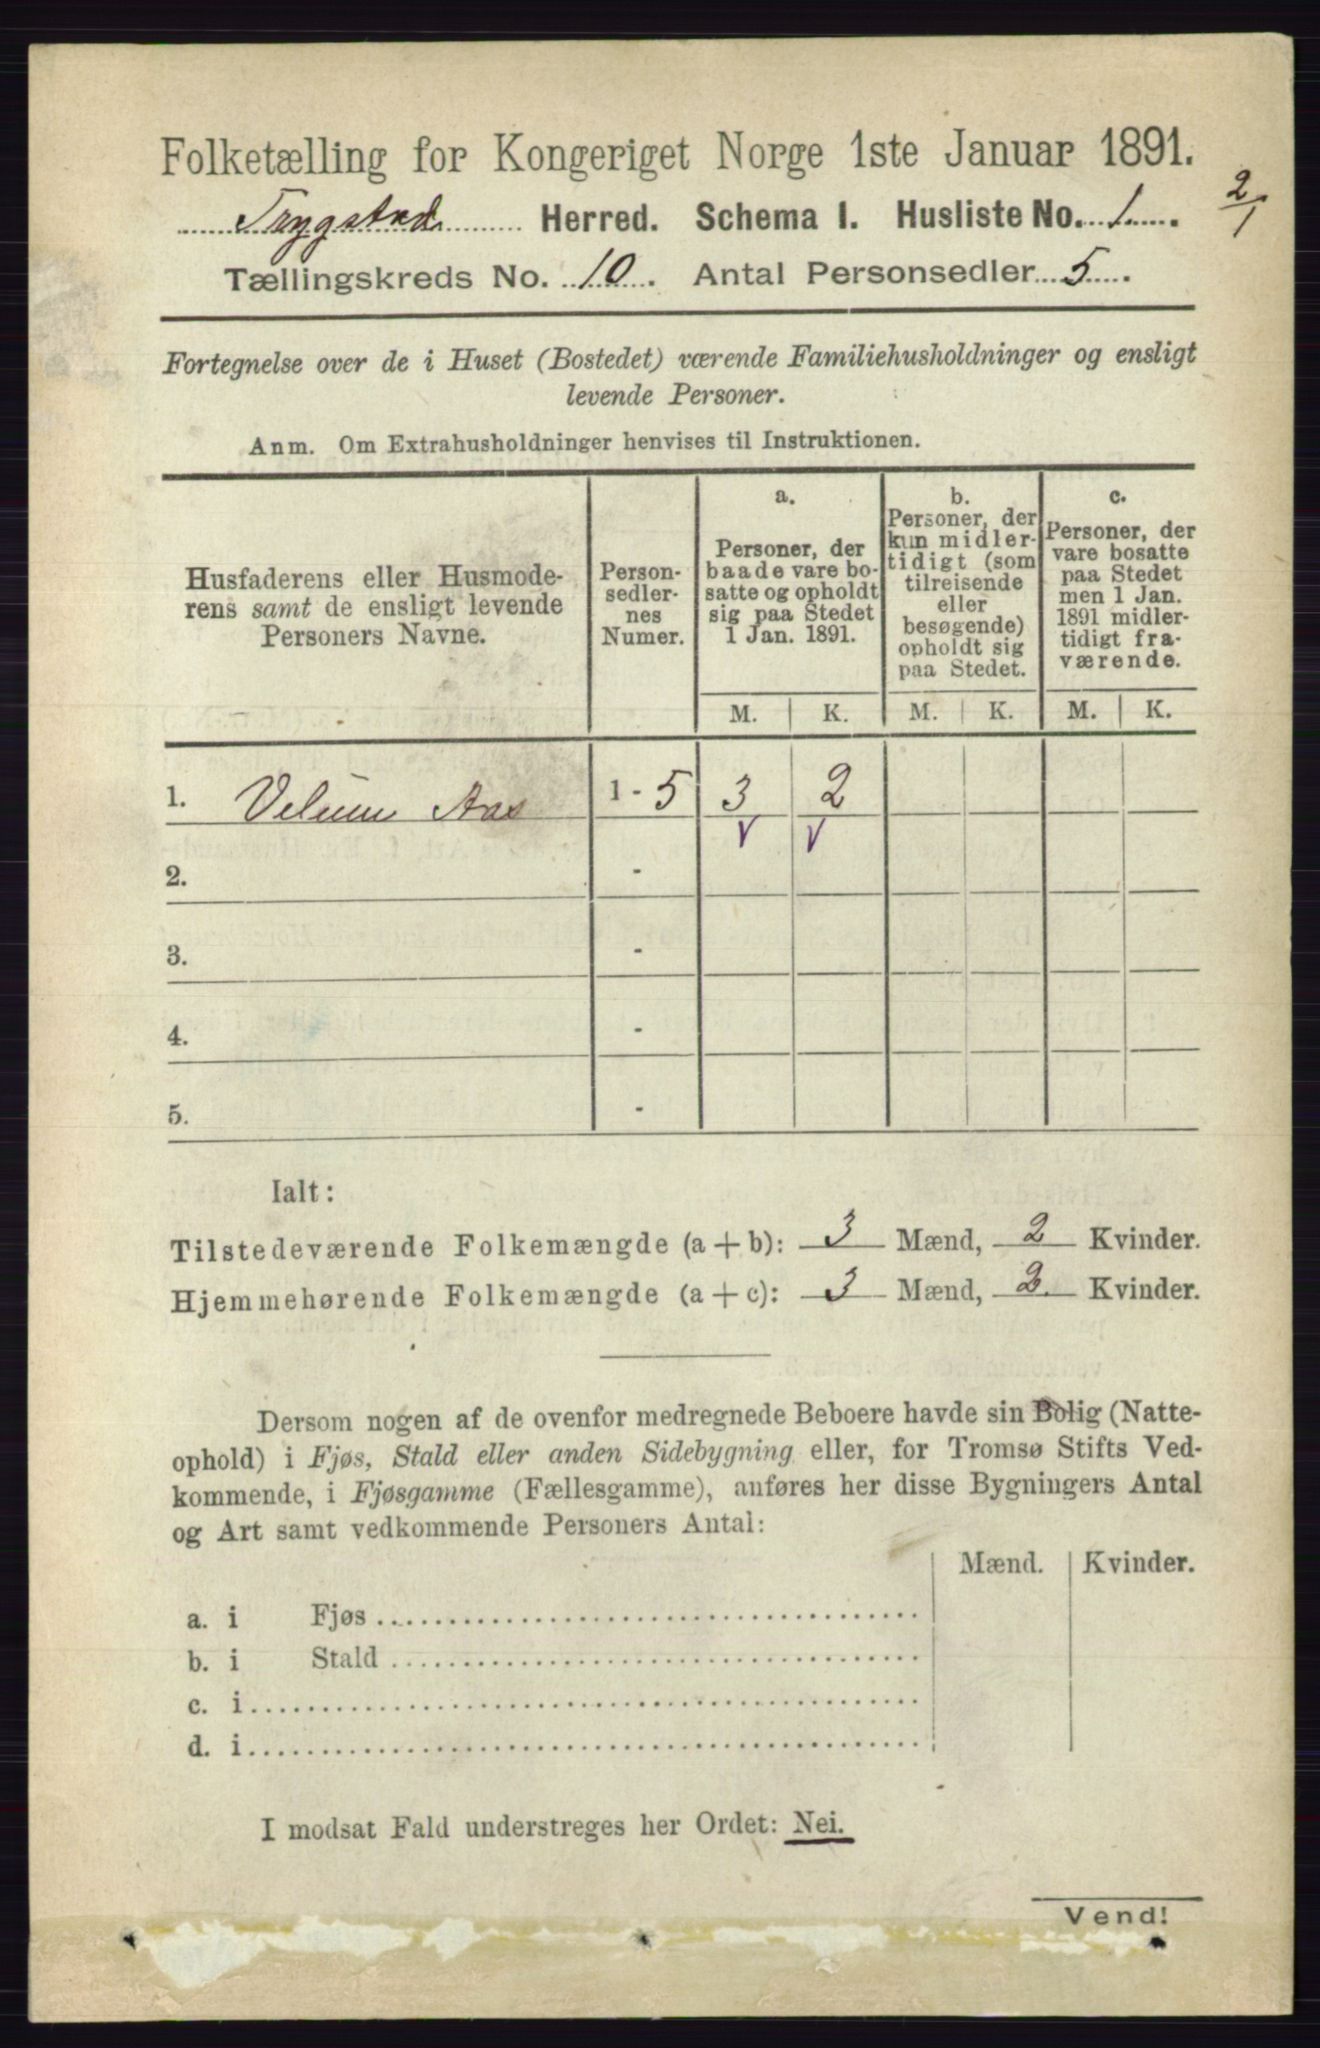 Folketælling for Kongeriget Norge 1ste Januar 1891.
Trygstad Herred. Schema I. Husliste No. 1.
2/1
Tællingskreds No. 10. Antal Personsedler 5.
Fortegnelse over de i Huset (Bostedet) værende Familiehusholdninger og ensligt
levende Personer.
Anm. Om Extrahusholdninger henvises til Instruktionen.
Husfaderens eller Husmode-
rens samt de ensligt levende
Personers Navne.
Person-
sedler-
nes
Numer.
a.
Personer, der
baade vare bo-
satte og opholdt
sig paa Stedet
1 Jan. 1891.
b.
Personer, der
kun midler-
tidigt (som
tilreisende
eller
besøgende)
opholdt sig
paa Stedet.
c.
Personer, der
vare bosatte
paa Stedet
men 1 Jan.
1891 midler-
tidigt fra-
værende.
M. K. M. K. M. K.
1. Aas 1 - 5 3 2
V V
2. -
3. -
4. -
5. -
Ialt:
Tilstedeværende Folkemængde (a + b): 3 Mænd, 2 Kvinder.
Hjemmehørende Folkemængde (a + c): 3 Mænd, 2. Kvinder.
Dersom nogen af de ovenfor medregnede Beboere havde sin Bolig (Natte-
ophold) i Fjøs, Stald eller anden Sidebygning eller, for Tromsø Stifts Ved-
kommende, i Fjøsgamme (Fællesgamme), anføres her disse Bygningers Antal
og Art samt vedkommende Personers Antal:
Mænd. Kvinder.
a. i Fjøs
b. i Stald
c. i
d. i
I modsat Fald understreges her Ordet: Nei.
Vend!